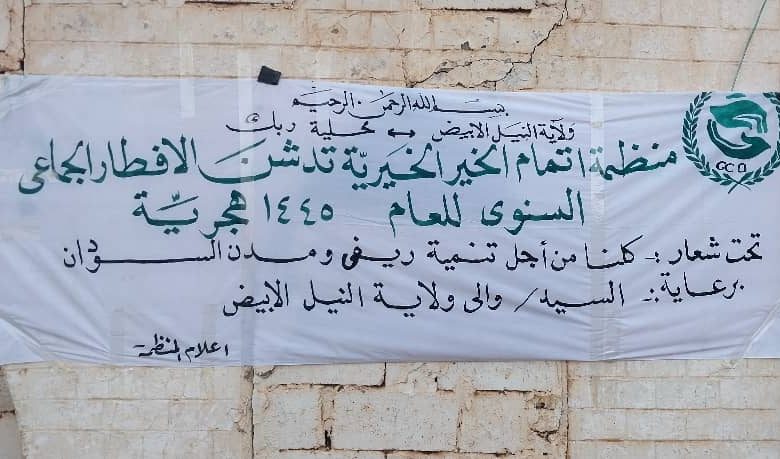 بسم الله الرحمن الرحيم
ولاية النيل الابيض ↔ محلية ربك
منظمة اتمام الخير الخيرية تدشن الافطار الجماعى
السنوى للعام ١٤٤٥ هجرية
تحت شعار :- كلنا من أجل تنمية ريفى ومدن السودان
برعاية :- السيد/ والى ولاية النيل الابيض
اعلام المنظمة